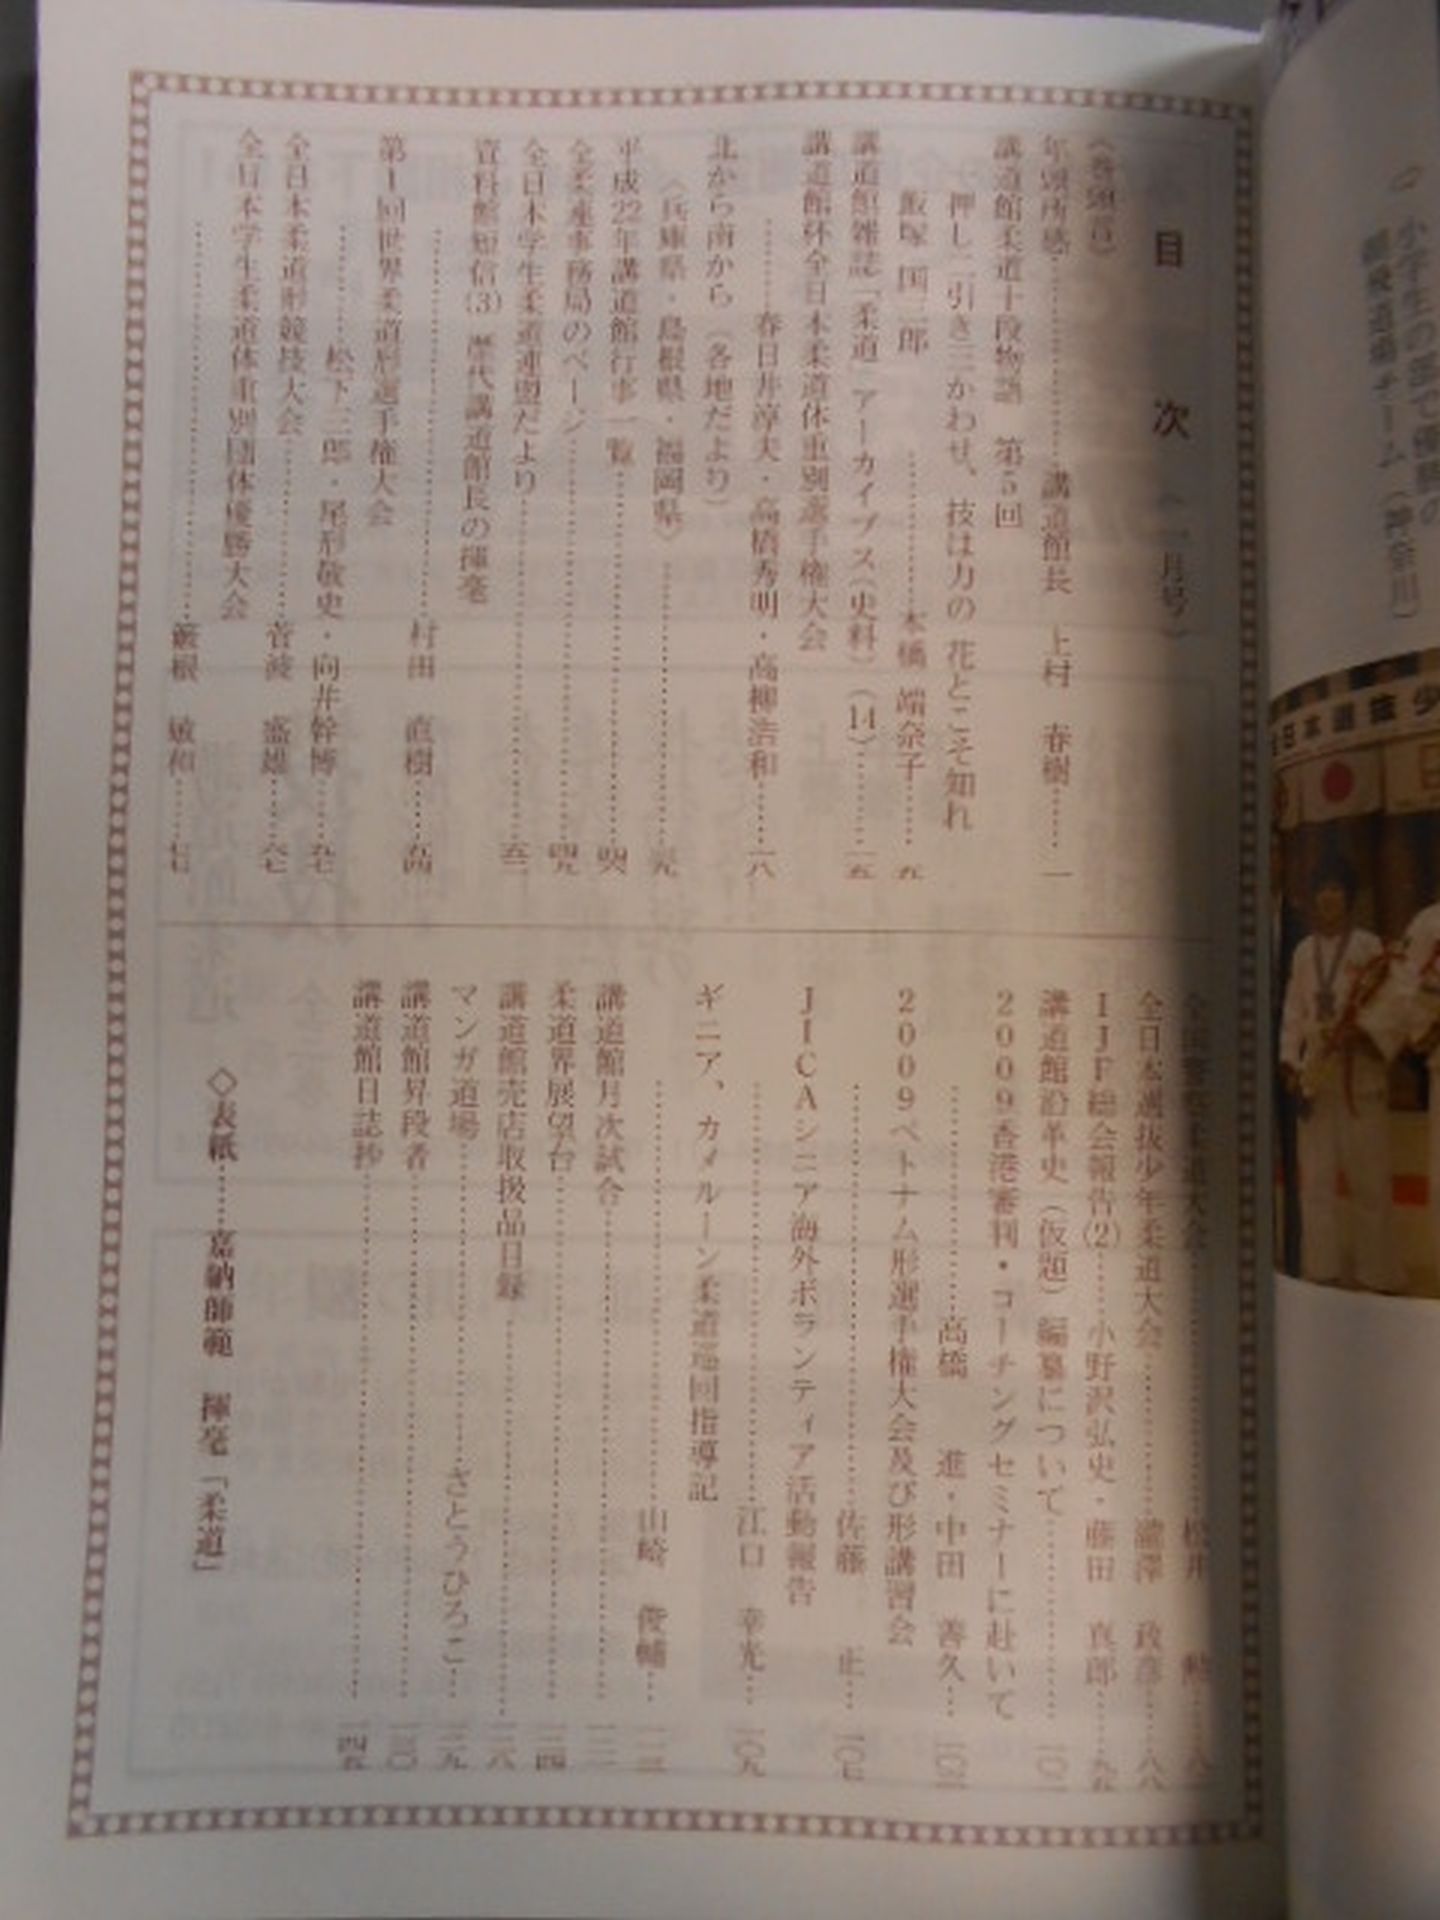 目次〈一月号〉
〈巻頭言〉
年頭所感……講道館長 上村 春樹……一
講道館柔道十段物語 第5回
押し二引き三かわせ、技は力の 花とこそ知れ
飯塚 国三郎
……本橋 端奈子……五
講道館雑誌「柔道」アーカイブス(史料)(14)……一五
講道館杯全日本柔道体重別選手権大会
……春日井淳夫・高橋秀明・高柳浩和……一八
北から南から(各地だより)
〈兵庫県・島根県・福岡県〉……
平成22年講道館行事一覧……
全柔連事務局のページ……四九
全日本学生柔道連盟だより……
資料館短信(3) 歴代講道館長の揮毫
……村田 直樹……五四
第1回世界柔道形選手権大会
……松下三郎・尾形敬史・向井幹博……五七
全日本柔道形競技大会……菅波 盛雄……六七
全日本学生柔道体重別団体優勝大会
……巌根 敏和……七七
柔道大会……松井 勲……
全日本選抜少年柔道大会……瀧澤 政彦……八八
IJF総会報告(2)……小野沢弘史・藤田 真郎……九五
講道館沿革史(仮題)編纂について……
2009香港審判・コーチングセミナーに赴いて
……高橋 進・中田 善久……
2009ベトナム形選手権大会及び形講習会
……佐藤 正……一〇七
JICAシニア海外ボランティア活動報告
……江口 幸光……一〇九
ギニア、カメルーン柔道巡回指導記
……山崎 俊輔……
講道館月次試合……
柔道界展望台……
講道館売店取扱品目録……一二八
マンガ道場……さとうひろこ……一二九
講道館昇段者……一三〇
講道館日誌抄……一四五
◇表紙……嘉納師範 揮毫「柔道」
小学生の部で優勝の
チーム(神奈川)
日本選抜少